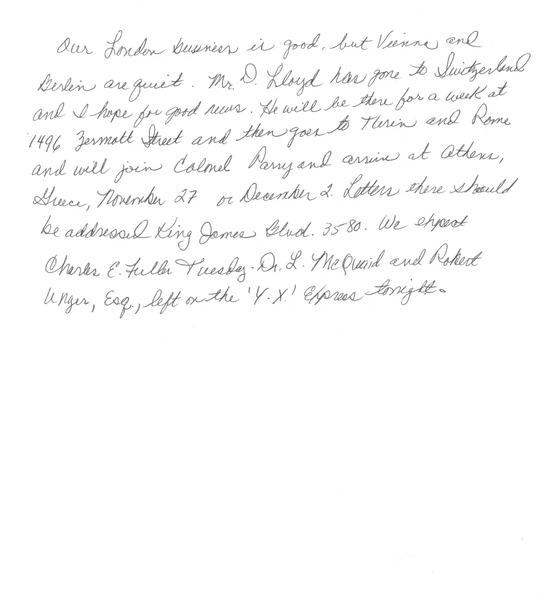 Our London business is good, but Vienna and
Berlin are quiet. Mr. D. Lloyd has gone to Switzerland
and I hope for good news. He will be there for a week at
1496 Zermott Street and then goes to Turin and Rome
and will join Colonel Parry and arrive at Athens,
Greece, November 27 or December 2. Letters there should
be addressed King James Blvd. 3580. We expect
Charles E. Fuller Tuesday. Dr. L. McQuaid and Robert
Unger, Esq., left on the 'Y.X.' Express tonight.